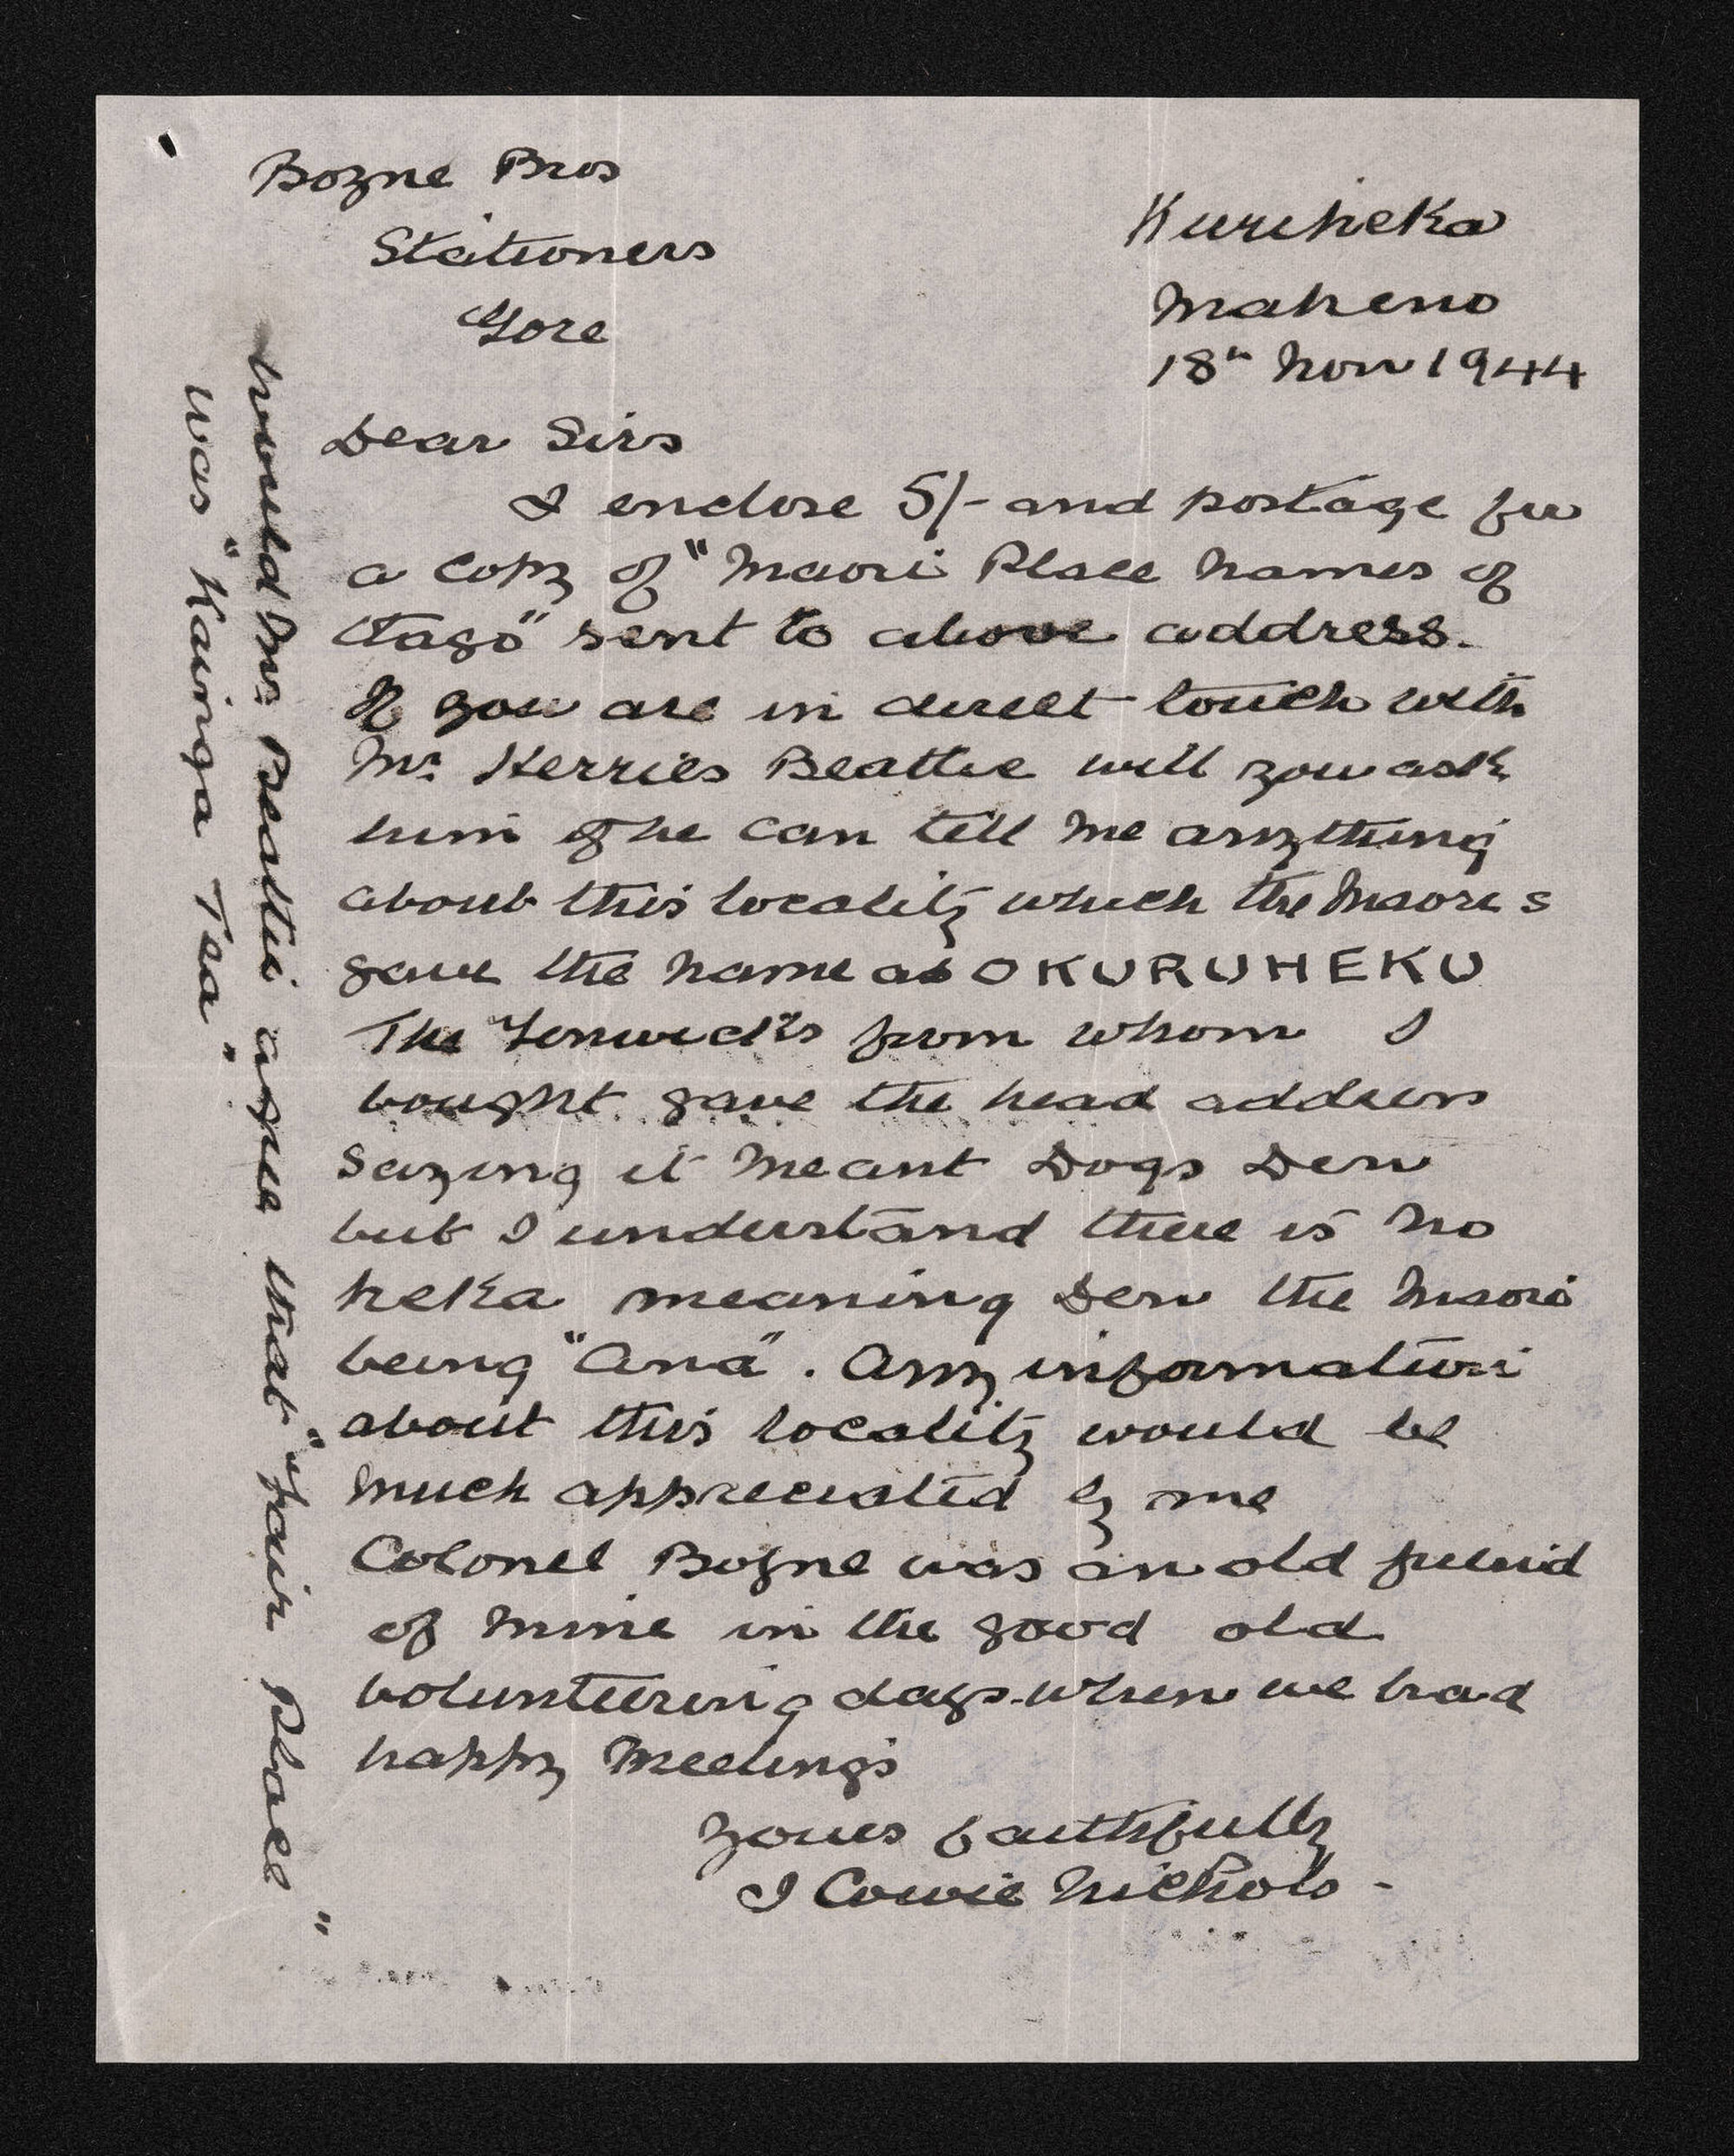 Boyne Bros
Stationers
Gore
Kuriheka
Maheno
18th Nov 1944
Dear Sirs
I enclose 5/- and postage for
a copy of "Maori Place Names of
Otago" sent to above address.
If you are in direct touch with
Mr Herries Beattie will you ask
him if he can tell me anything
about this locality which the Maoris
gave the name as OKURUHEKU
The Fenwicks from whom I
bought gave the head address
saying it meant Dogs Den
but I understand there is no
heka meaning Den the Maori
being "Ana". Any information
about this locality would be
much appreciated by me
Colonel Boyne was an old friend
of mine in the good old
volunteering days when we had
happy meetings
Yours faithfully
J Cowie Nichols -
Would Mr Beattie agree that "fair Place"
was "Kainga Tea"